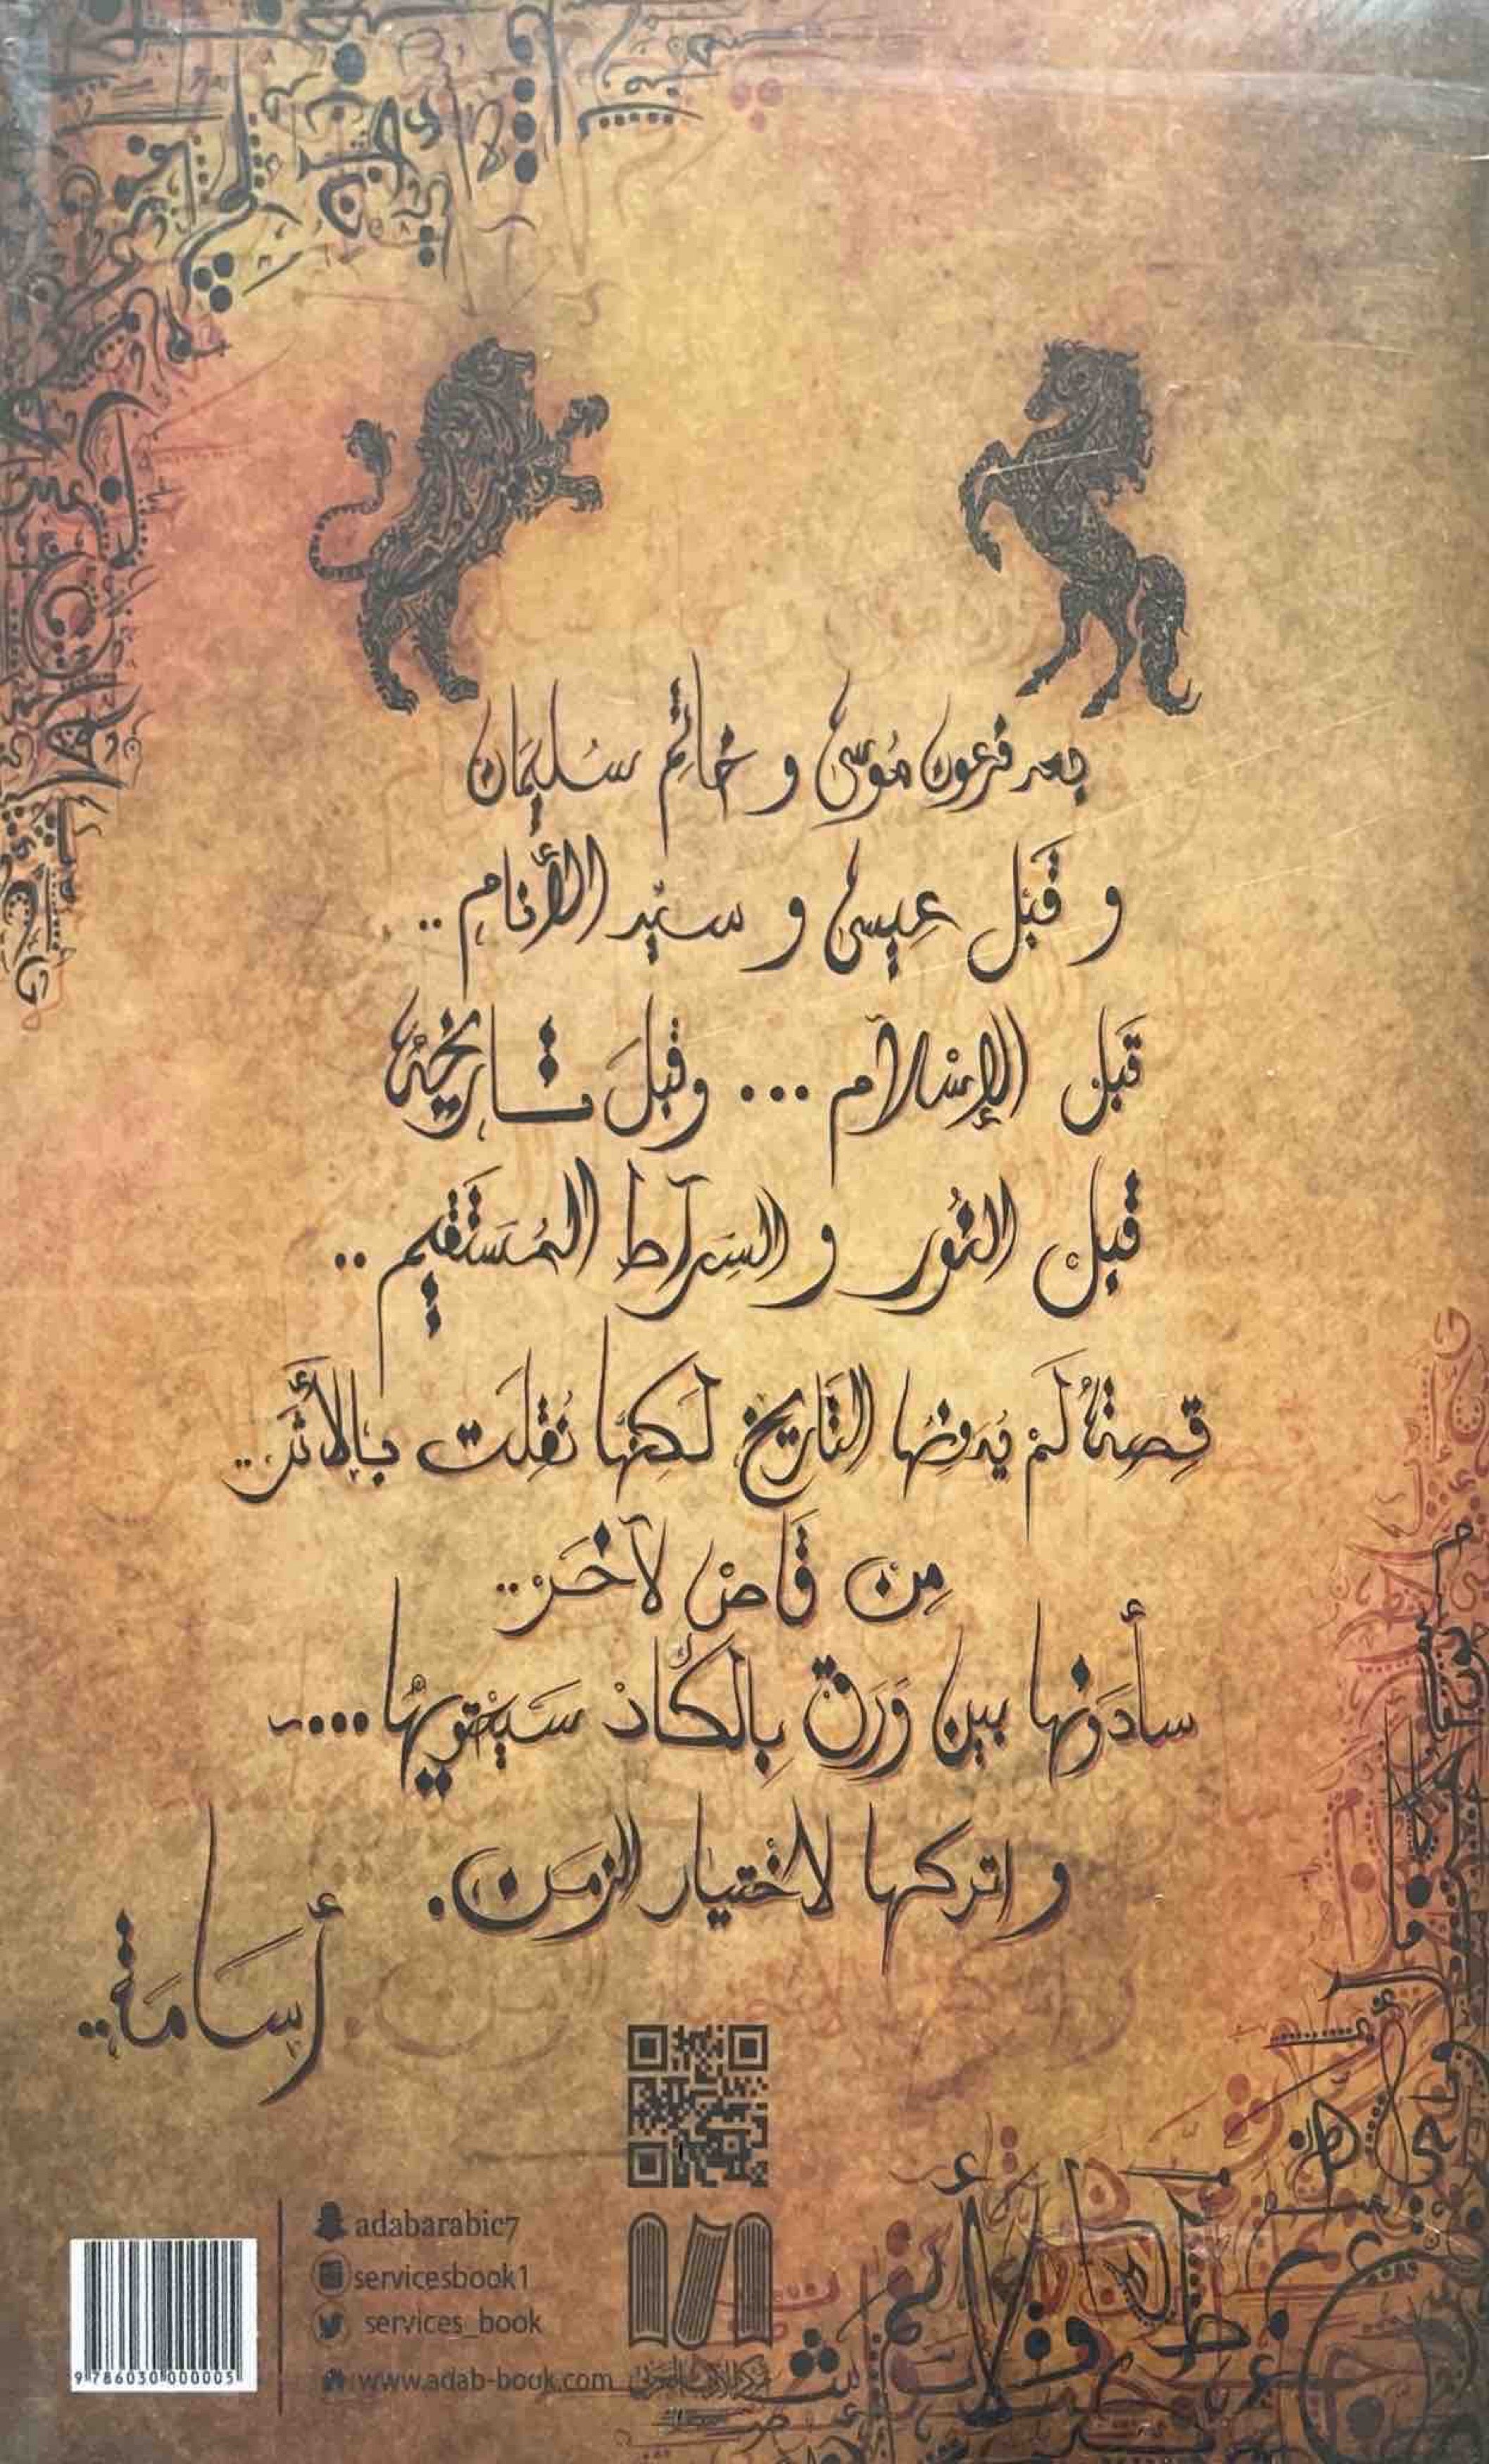 بعد فرعون مُوسىٰ و خاتِم سُليمَان
و قَبْل عِيسىٰ و سيّد الأنام ..
قَبل الإسْلآم ... وقبلَ تاريخِهُ
قبل النُور و السِرآط المُستَقيم ..
قِصةٌ لَمْ يُدونها التَاريخ لَكِنها نُقِلَت بالأثَر ..
مِنْ قَاصْ لآخَرْ ..
سأدَونها بين وَرَق بالكَادْ سَيحتويهُا ....
و اتركها لأختيار الزمَن .
أسَامَة ..
adabarabic7
servicesbook1
services_book
www.adab-book.com
مركز الأدب العربي
9 786030 000005